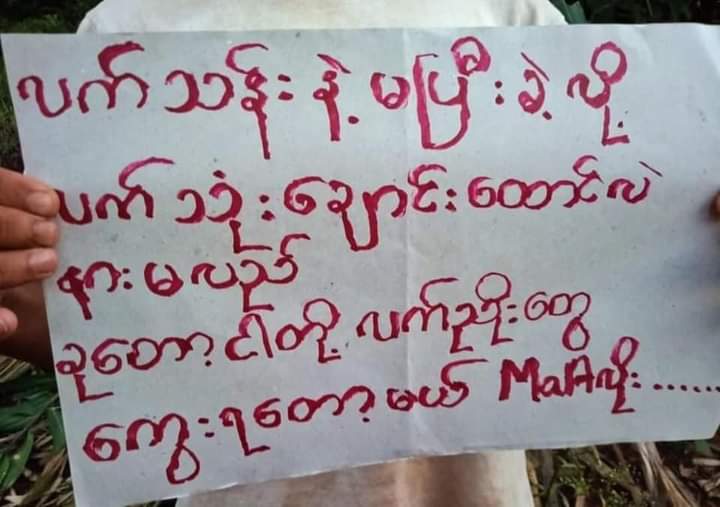 လက်သန်းနဲ့မပြီးခဲ့လို့
လက်သုံးချောင်းထောင်လဲ
နားမလည်
ခုတော့ငါတို့လက်ညိုးတွေ
ကွေးရတော့မယ် MaAလိုး......